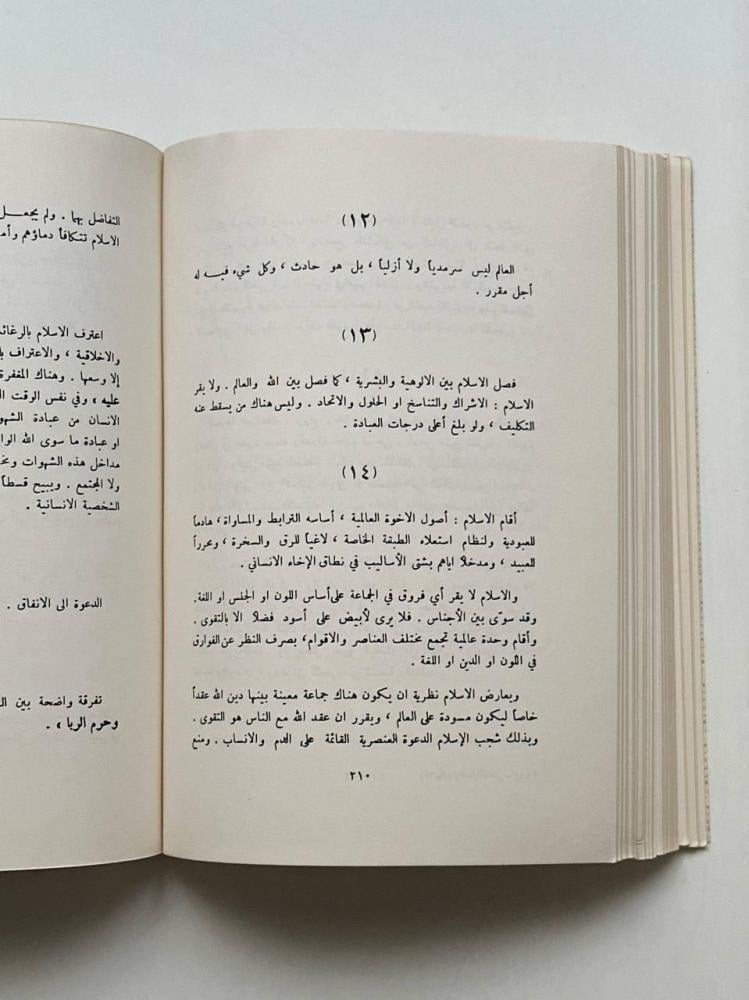 (١٢)
العالم ليس سرمدياً ولا أزلياً ، بل هو حادث ، وكل شيء فيه له
أجل مقرر .
(١٣)
فصل الاسلام بين الالوهية والبشرية ، كما فصل بين الله والعالم . ولا يقر
الاسلام : الاشراك والتناسخ او الحلول والاتحاد . وليس هناك من يسقط عنه
التكليف ، ولو بلغ أعلى درجات العبادة .
(١٤)
أقام الاسلام : أصول الاخوة العالمية ، أساسه الترابط والمساواة ، هادماً
للعبودية ولنظام استعلاء الطبقة الخاصة ، لاغياً للرق والسخرة ، ومحرراً
للعبيد ، ومدخلاً اياهم بشتى الأساليب في نطاق الإخاء الانساني .
والاسلام لا يقر أي فروق في الجماعة على أساس اللون او الجنس او اللغة.
وقد سوّى بين الأجناس . فلا يرى لأبيض على أسود فضلاً الا بالتقوى .
وأقام وحدة عالمية تجمع مختلف العناصر والاقوام، بصرف النظر عن الفوارق
في اللون او الدين او اللغة .
ويعارض الاسلام نظرية ان يكون هناك جماعة معينة بينها دين الله عقداً
خاصاً ليكون مسودة على العالم ، ويقرر ان عقد الله مع الناس هو التقوى .
وبذلك شجب الإسلام الدعوة العنصرية القائمة على الدم والانساب . ومنع
٢١٠
التفاضل بها . ولم يجعل
الاسلام تتكافأ دماؤهم
اعترف الاسلام
والاخلاقية ، والاعتراف
إلا وسعها . وهناك المغفرة
عليه » وفي نفس الوقت
الانسان من عبادة
او عبادة ما سوى الله
مداخل هذه الشهوات
ولا المجتمع . ويبيح قسطاً
الشخصية الانسانية .
الدعوة الى الانفاق .
تفرقة واضحة بين
وحرم الربا » .